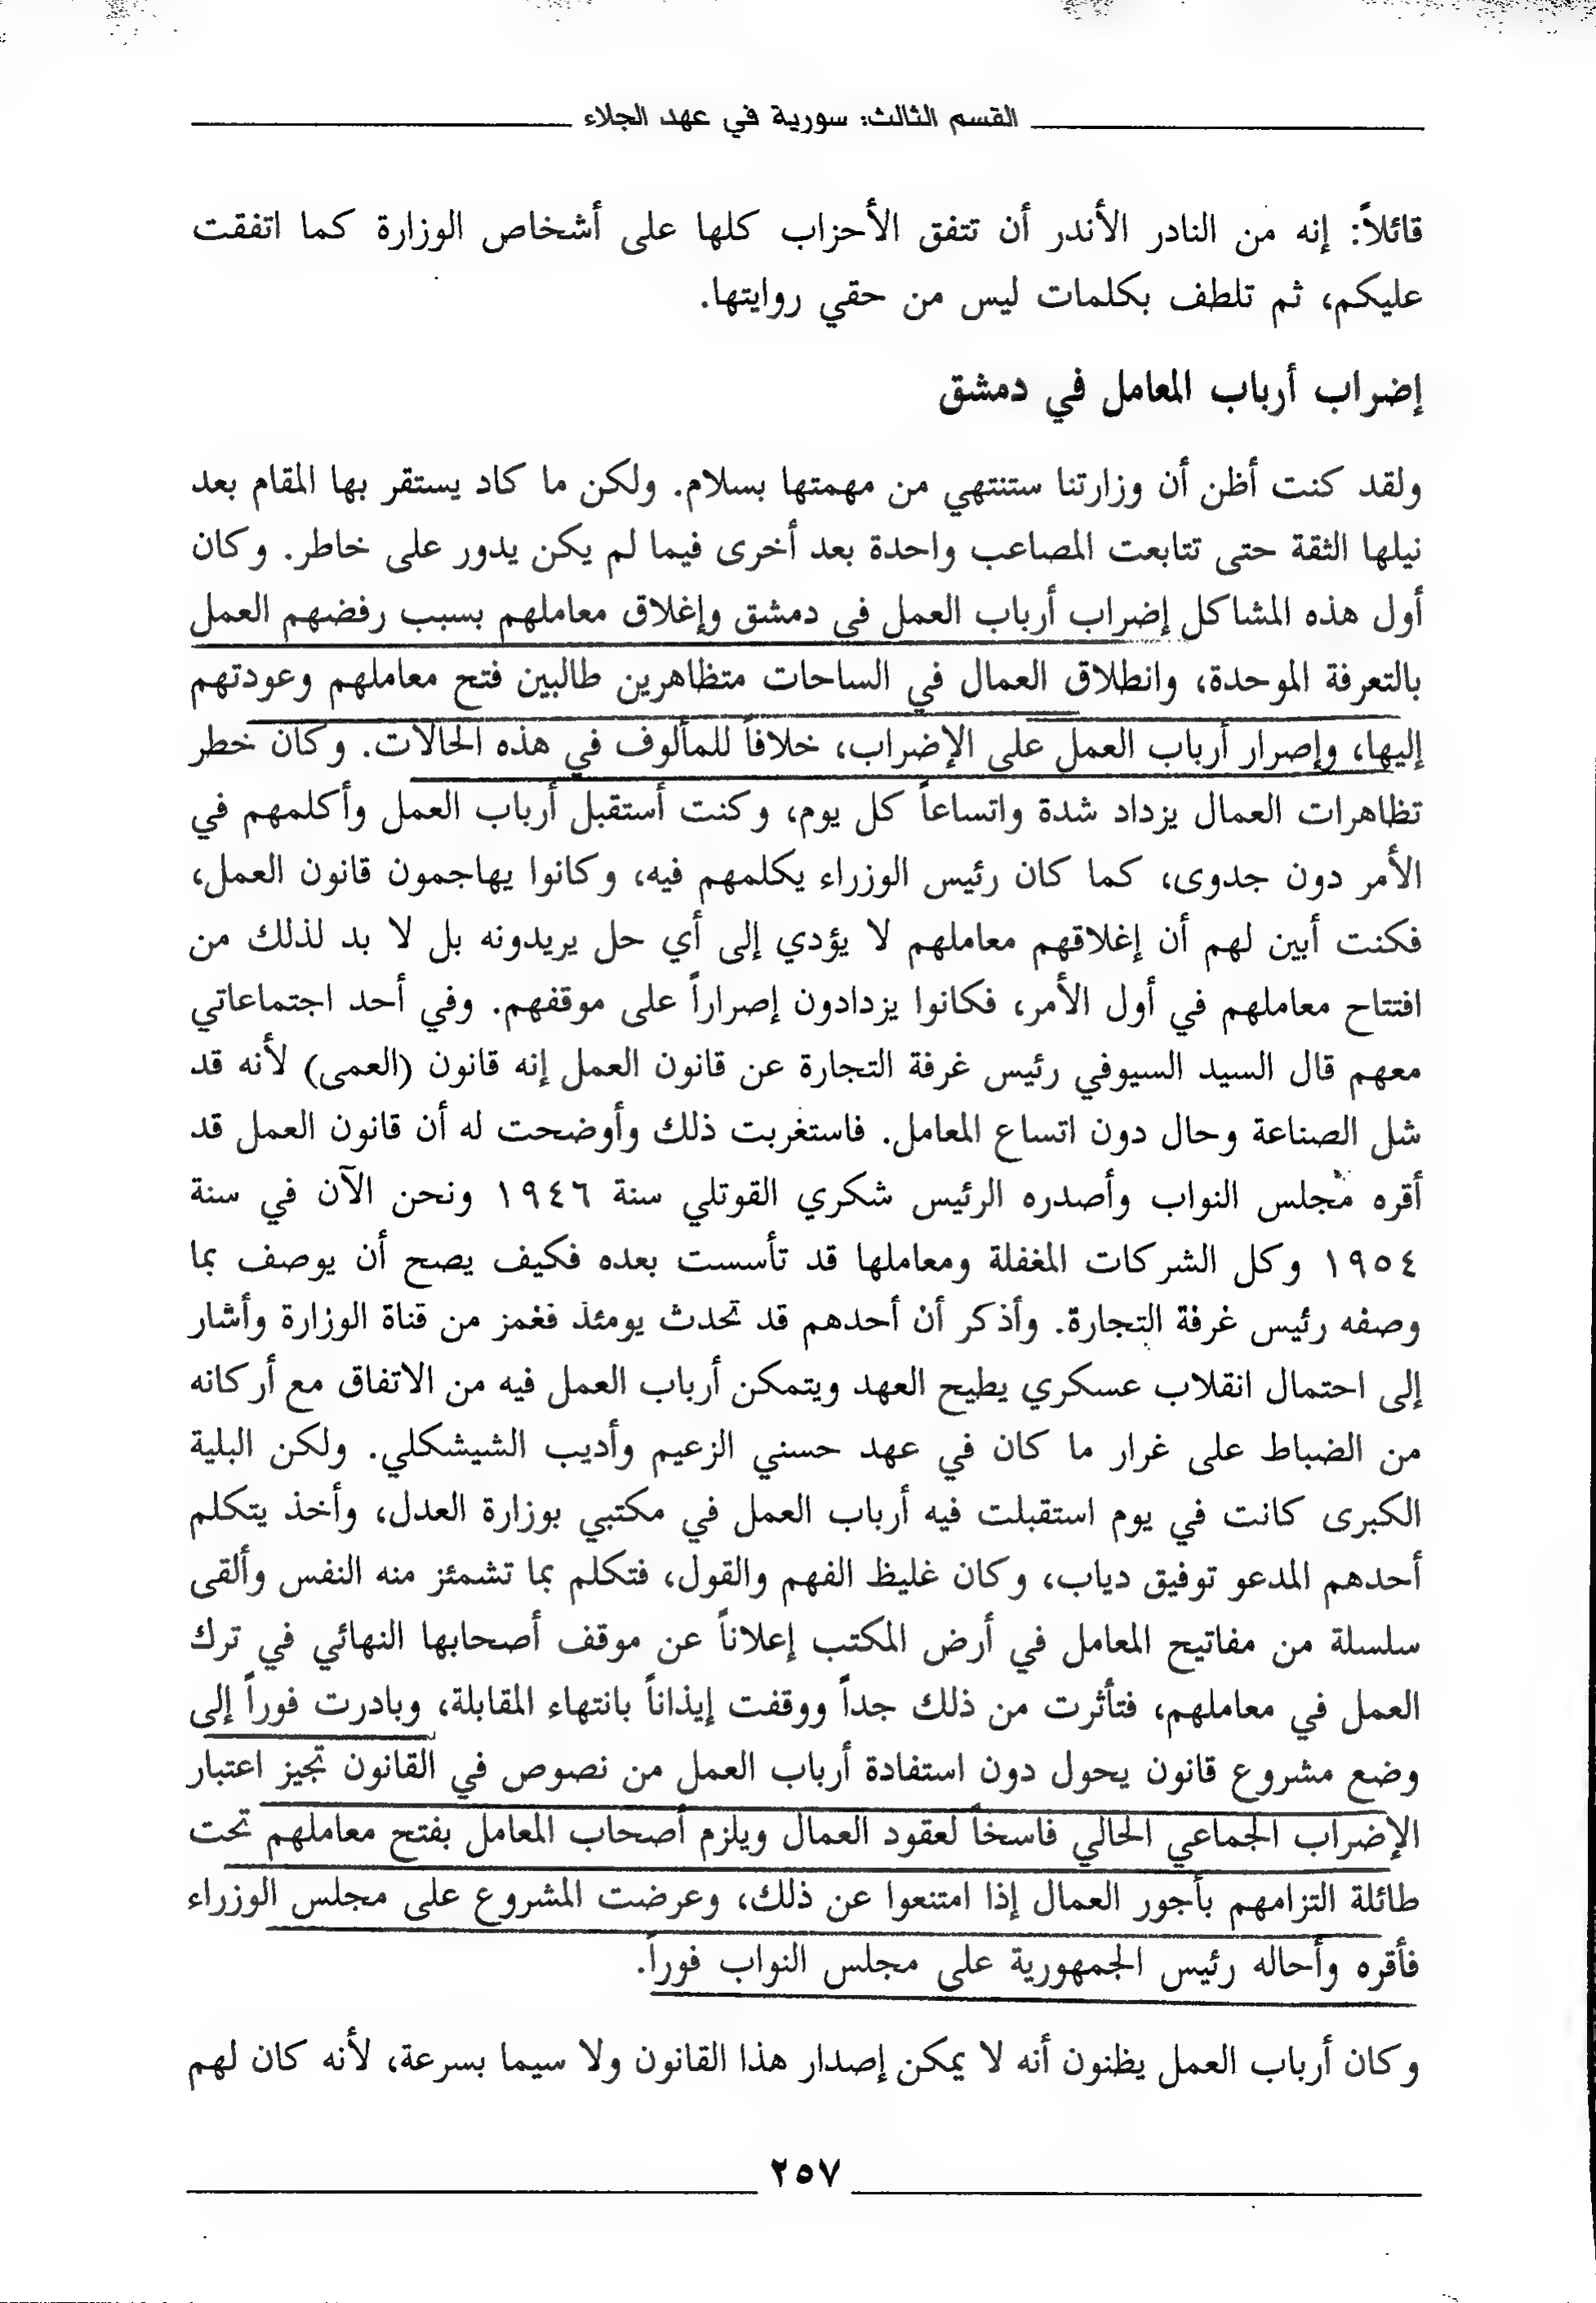 القسم الثالث: سورية في عهد الجلاء
قائلاً: إنه من النادر الأندر أن تتفق الأحزاب كلها على أشخاص الوزارة كما اتفقت
عليكم، ثم تلطف بكلمات ليس من حقي روايتها.
إضراب أرباب المعامل في دمشق
ولقد كنت أظن أن وزارتنا ستنتهي من مهمتها بسلام. ولكن ما كاد يستقر بها المقام بعد
نيلها الثقة حتى تتابعت المصاعب واحدة بعد أخرى فيما لم يكن يدور على خاطر. وكان
أول هذه المشاكل إضراب أرباب العمل في دمشق وإغلاق معاملهم بسبب رفضهم العمل
بالتعرفة الموحدة، وانطلاق العمال في الساحات متظاهرين طالبين فتح معاملهم وعودتهم
إليها، وإصرار أرباب العمل على الإضراب، خلافاً للمألوف في هذه الحالات. وكان خطر
تظاهرات العمال يزداد شدة واتساعاً كل يوم، وكنت أستقبل أرباب العمل وأكلمهم في
الأمر دون جدوى، كما كان رئيس الوزراء يكلمهم فيه، وكانوا يهاجمون قانون العمل،
فكنت أبين لهم أن إغلاقهم معاملهم لا يؤدي إلى أي حل يريدونه بل لا بد لذلك من
افتتاح معاملهم في أول الأمر، فكانوا يزدادون إصراراً على موقفهم. وفي أحد اجتماعاتي
معهم قال السيد السيوفي رئيس غرفة التجارة عن قانون العمل إنه قانون (العمى) لأنه قد
شل الصناعة وحال دون اتساع المعامل. فاستغربت ذلك وأوضحت له أن قانون العمل قد
أقره مجلس النواب وأصدره الرئيس شكري القوتلي سنة ١٩٤٦ ونحن الآن في سنة
١٩٥٤ وكل الشركات المغفلة ومعاملها قد تأسست بعده فكيف يصح أن يوصف بما
وصفه رئيس غرفة التجارة. وأذكر أن أحدهم قد تحدث يومئذ فغمز من قناة الوزارة وأشار
إلى احتمال انقلاب عسكري يطيح العهد ويتمكن أرباب العمل فيه من الاتفاق مع أركانه
من الضباط على غرار ما كان في عهد حسني الزعيم وأديب الشيشكلي. ولكن البلية
الكبرى كانت في يوم استقبلت فيه أرباب العمل في مكتبي بوزارة العدل، وأخذ يتكلم
أحدهم المدعو توفيق دياب، وكان غليظ الفهم والقول، فتكلم بما تشمئز منه النفس وألقى
سلسلة من مفاتيح المعامل في أرض المكتب إعلاناً عن موقف أصحابها النهائي في ترك
العمل في معاملهم، فتأثرت من ذلك جداً ووقفت إيذاناً بانتهاء المقابلة، وبادرت فوراً إلى
وضع مشروع قانون يحول دون استفادة أرباب العمل من نصوص في القانون تجيز اعتبار
الإضراب الجماعي الحالي فاسخاً لعقود العمال ويلزم أصحاب المعامل بفتح معاملهم تحت
طائلة التزامهم بأجور العمال إذا امتنعوا عن ذلك، وعرضت المشروع على مجلس الوزراء
فأقره وأحاله رئيس الجمهورية على مجلس النواب فوراً.
وكان أرباب العمل يظنون أنه لا يمكن إصدار هذا القانون ولا سيما بسرعة، لأنه كان لهم
٢٥٧